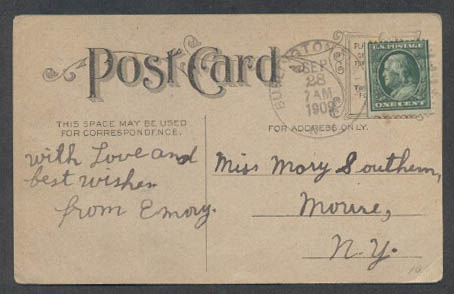 Post Card
THIS SPACE MAY BE USED
FOR CORRESPONDENCE.
FOR ADDRESS ONLY.
SEP
28
7 AM
1909
U.S. POSTAGE
ONE CENT
With Love and
best wishes
from Emory.
Miss Mary Southern,
N.Y.